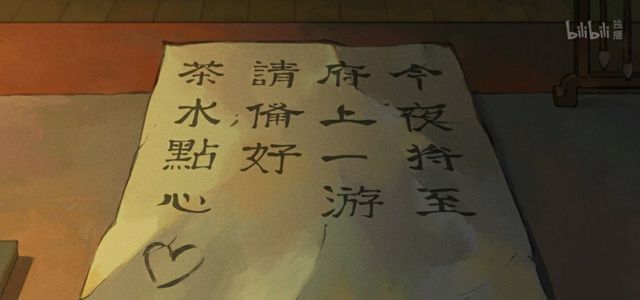 今夜将至
府上一游
請備好
茶水點心
bilibili 独播